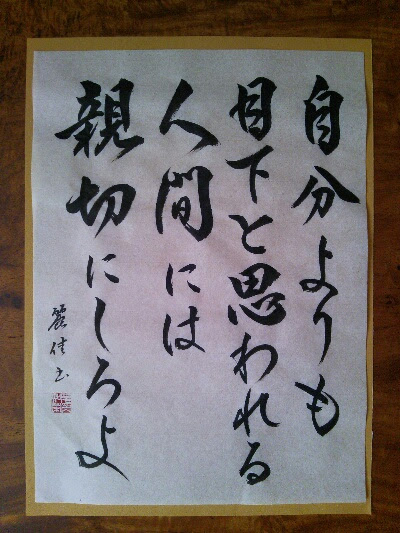 自分よりも
目下と思われる
人間には
親切にしろよ
麗佳書